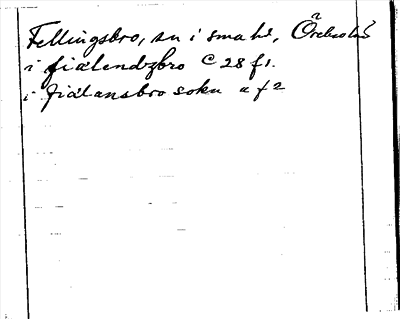 Fellingsbro, sn i sma hd, Örebro län
i fiälendzbro C 28 f 1.
i fiælansbro sokn a f 2